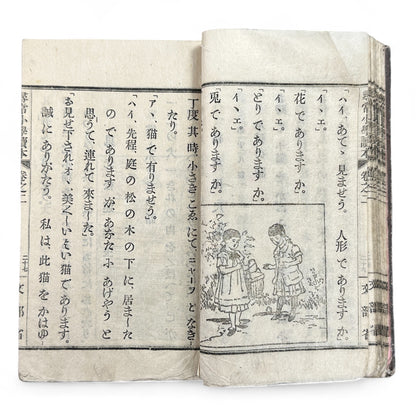 「ハイ、あてゝ見ませう。人形でありますか。」
「イヽエ。」
花でありますか。」
「イヽエ。」
とりでありますか。」
「イヽエ。」
兎でありますか。」
丁度其時、小さきこゑにて、ニャーツとなき
たり。
「アヽ、猫で有りませう。」
「ハイ、先程、庭の松の木の下に、居ました
のでありますが、あなたにあげやうと
思うて、連れて來ました。」
「お見せ下され。オヽ、美くしい猫であります。
誠にありがたう。私は、此猫をかはゆ
尋常小學讀本
卷之二
文部省